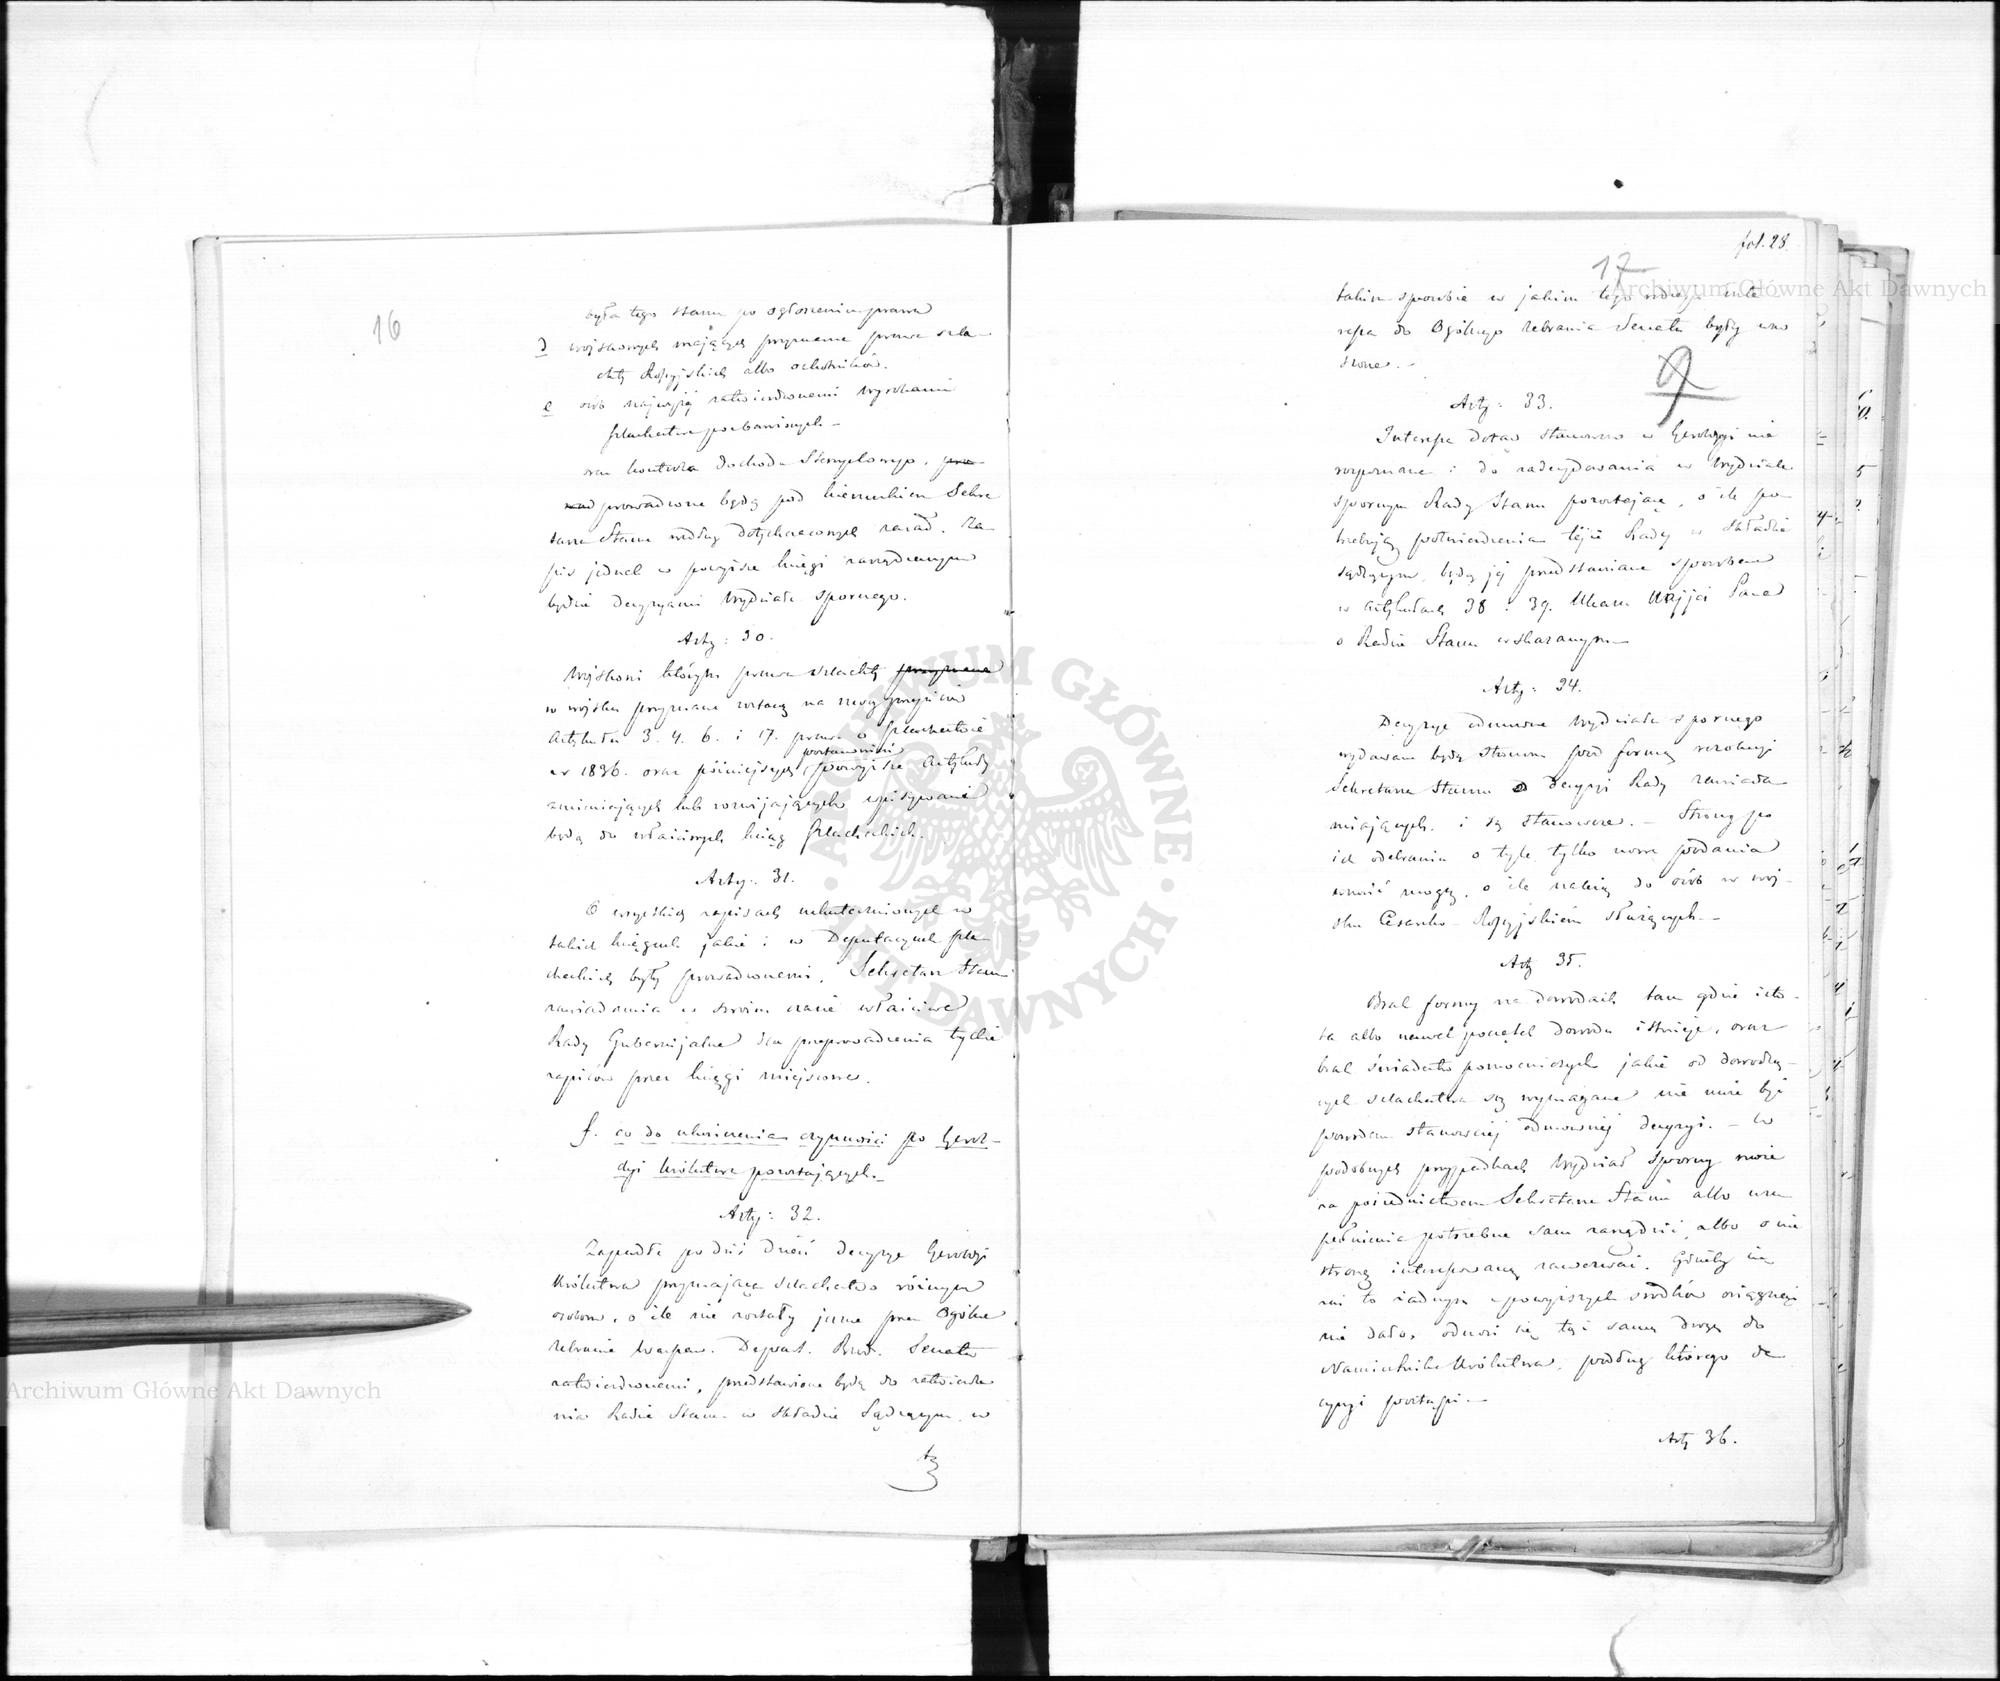 16
była tego stanu po ogłoszeniu prawa
d wojskowych mających przyznane prawa szla-
chty Rossyjskiej albo ochotników.
e osób najwyżej zatwierdzonemi wyrokami
szlachectwa pozbawionych –
oraz kontrola dochodu Stemplowego,
prowadzone będą pod kierunkiem Sekre
tarza Stanu według dotychczasowych zasad. Za-
pis jednak w powyższe księgi zarządzanym
będzie decyzyami Wydziału spornego.
Arty: 30.
Wojskowi którym prawa szlachty przyznane
w wojsku przyznane zostaną na mocy przepisów
Artykułu 3. 4. 6. i 17. prawa o szlachectwie
z r 1836. oraz późniejszych postanowień powyższe Artykuły
zmieniających lub rozwijających wpisywani
będą do właściwych ksiąg szlacheckich.
Arty: 31.
O wszystkich zapisach uskutecznionych w
takich księgach jakie i w Deputacyach szla-
checkich były prowadzonemi, Sekretarz Stanu
zawiadamia w swoim czasie właściwe
Rady Gubernijalne dla przeprowadzenia tychże
zapisów przez księgi miejscowe.
f. co do ukończenia czynności po Herol-
dyi Królestwa pozostających.–
Arty: 32.
Zapadłe po dziś dzień decyzye Heroldyi
Królestwa przyznające szlachectwo różnym
osobom, o ile nie zostały jeszcze przez Ogólne
Zebranie Warszaw. Depart. Rząd. Senatu
zatwierdzonemi, przedstawione będą do zatwierdze
nia Radzie Stanu w składzie Sądzącym w
ta
fol. 28.
17
takim sposobie w jakim tego rodzaju inte
ressa do Ogólnego Zebrania Senatu były wno
szone. –
9
Arty: 33.
Interessa dotąd stanowczo w Heroldyi nie
rozpoznane i do zadecydowania w Wydziale
spornym Rady Stanu pozostające, o ile po-
trzebują potwierdzenia tejże Rady w składzie
sądzącym, będą jej przedstawiane sposobem
w Artykułach 38 i 39. Ukazu Najjaś Pana
o Radzie Stanu wskazanym –
Arty: 34.
Decyzye odmowne Wydziału spornego
wydawane będą stronom pod formą rezolucyi
Sekretarza Stanu o decyzyi Rady zawiada-
miających, i są stanowcze. – Strony po
ich odebraniu o tyle tylko nowe podania
wnosić mogą, o ile należą do osób w woj-
sku Cesarsko-Rossyjskiem służących. –
Arty 35.
Brak formy na dowodach tam gdzie isto-
ta albo nawet początek dowodu istnieje, oraz
brak świadectw pomocniczych jakie od dowodzą-
cych szlachectwa są wymagane nie może być
powodem stanowczej odmownej decyzyi. – W
podobnych przypadkach Wydział sporny może
za pośrednictwem Sekretarza Stanu albo uzu
pełnienia potrzebne sam zarządzić, albo o nie
stronę interesowaną zawezwać. Gdyby zaś
mi to żadnym z powyższych środków osiągnąć
nie dało, odnosi się tąż samą drogą do
Namiestnika Królestwa, podług którego de
cyzyi postąpi –
Arty 36.
ARCHIWUM GŁÓWNE AKT DAWNYCH
Archiwum Główne Akt Dawnych
Archiwum Główne Akt Dawnych